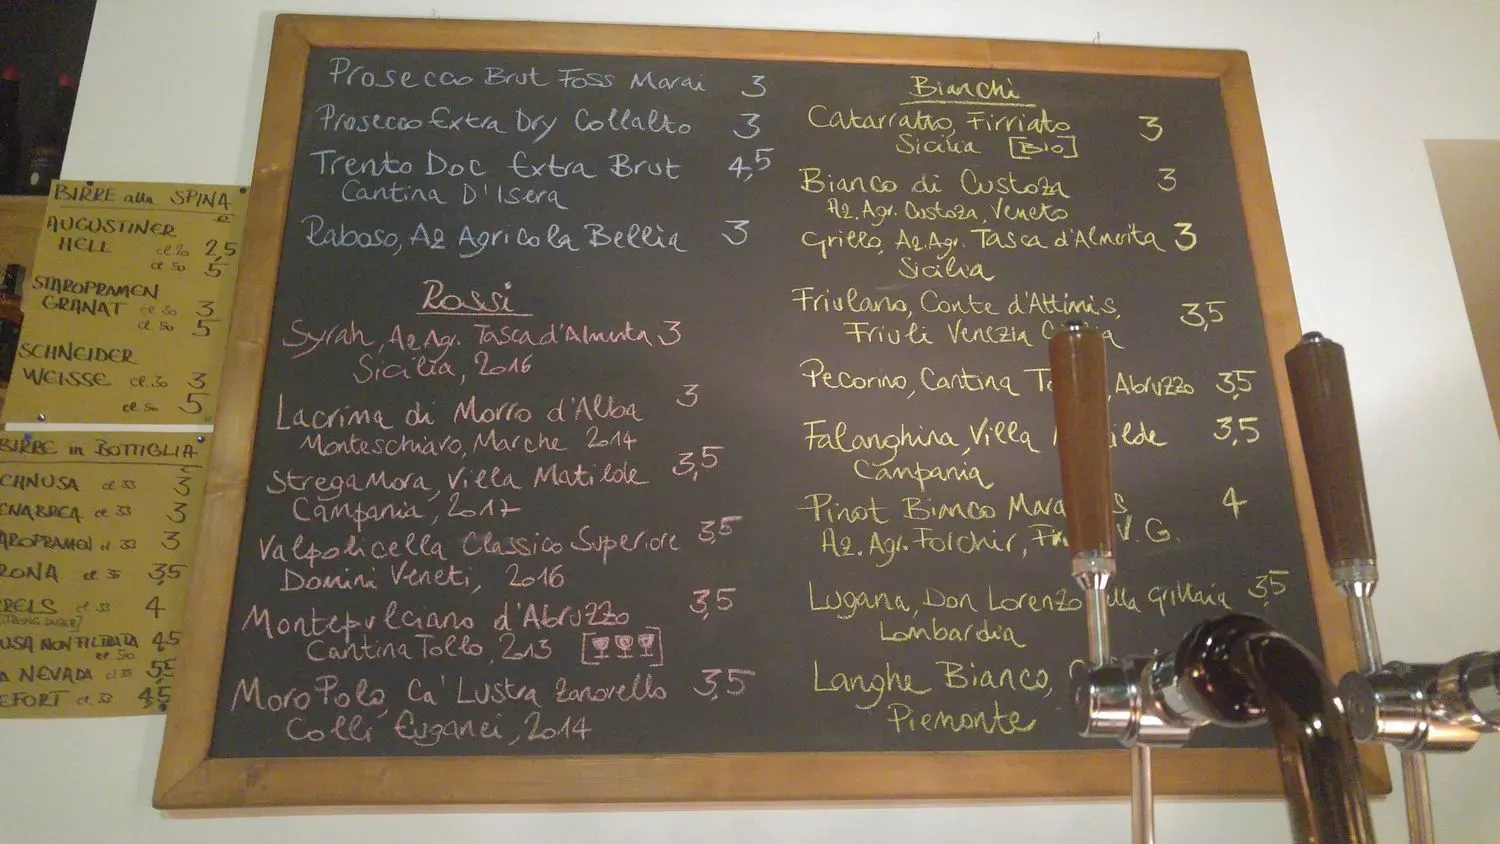 BIRRE alla SPINA
€
AUGUSTINER
HELL cl.20 2,5
cl 50 5
STAROPRAMEN
GRANAT cl 30 3
cl 50 5
SCHNEIDER
WEISSE cl.30 3
cl.50 5
BIRRE in BOTTIGLIA
CHNUSA cl 33 3
ENABREA cl 33 3
AROPRAMEN cl 33 3
RONA cl 35 3,5
RELS cl 33 4
USA NON FILTRATA 4,5
cl.50
A NEVADA cl 35 5,5
EFORT cl 33 4,5
Prosecco Brut Foss Marai 3
Prosecco Extra Dry Collalto 3
Trento Doc Extra Brut 4,5
Cantina D'Isera
Raboso, Az Agricola Bellia 3
Rossi
Syrah, Az Agr. Tasca d'Almerita 3
Sicilia, 2016
Lacrima di Morro d'Alba 3
Monteschiavo, Marche 2014
Stregamora, Villa Matilde 3,5
Campania, 2017
Valpolicella Classico Superiore 3,5
Domini Veneti, 2016
Montepulciano d'Abruzzo 3,5
Cantina Tollo, 2013
Moro Polo, Ca' Lustra Zanovello 3,5
Colli Euganei, 2014
Bianchi
Catarratto, Firriato 3
Sicilia [Bio]
Bianco di Custoza 3
Az. Agr. Custoza, Veneto
Grillo, Az. Agr. Tasca d'Almerita 3
Sicilia
Friulano, Conte d'Attimis, 3,5
Friuli Venezia
Pecorino, Cantina , Abruzzo 3,5
Falanghina, Villa 3,5
Campania
Pinot Bianco 4
Az. Agr. Forchir, V.G.
Lugana, Don Lorenzo Grillaia 3,5
Lombardia
Langhe Bianco,
Piemonte